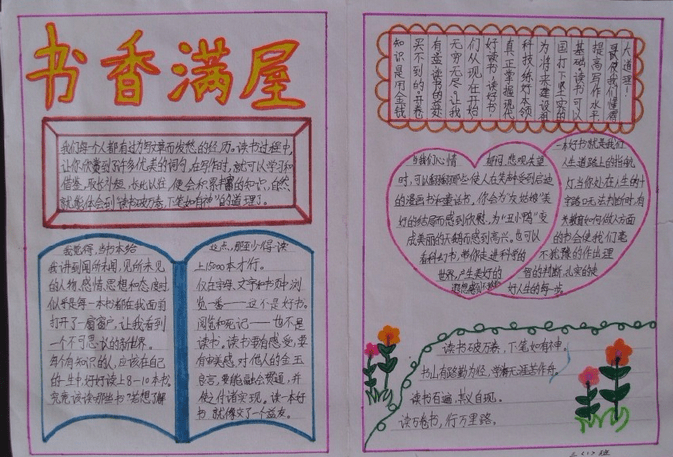 书香满屋
我们每个人都有过为写文章而发愁的经历。读书过程中,
让你欣赏到了许多优美的词句,在写作时,就可以学习和
借鉴,取长补短,长此以往,便会积累丰富的知识,自然
就能体会到"读书破万卷,下笔如有神"的道理了。
我觉得,当书本给
我讲到闻所未闻,见所未见
的人物、感情、思想和态度时
似乎是每一本书都在我面前
打开了一扇窗户,让我看到
一个不可思议的新世界。
每个有知识的人,应该在自己
的一生中,好好读上8-10本书。
究竟该读哪些书"若想了解
这点,那至少得读
上15000本才行。
仅在字母、文字和书页中浏
览一番——这不是好书。
阅览和死记——也不是
读书。读书要有感受,要
有审美感,对他人的金玉
良言,要能融会贯通,并
使之付诸实现。读一本好
书,就像交了一个益友。
大道理!
使我们懂得
提高写作水平
基础读书可以
国打下坚实的
为将来建设祖
科技,练好本领
真正掌握现代
好读书,读好书!
们从现在开始
无穷无尽!让我
有益,读书的益处
买不到的!开卷
知识是用金钱
当我们心情郁闷、悲观失望
时,可以翻翻那些使人在笑声中受到启迪
的漫画书和童话书,你会为"灰姑娘"美
好的结局而感到欣慰,为"丑小鸭"变
成美丽的天鹅而感到高兴。也可以
看科幻书,带你走进科学的
世界,产生美好的
一本好书就是我们
人生道路上的指航
灯当你处在人生的十
字路口无法判断时,有
关教育如何做人方面
的书会使我们毫
不犹豫的作出理
智的判断,扎实的走
好人生的每一步。
读书破万卷,下笔如有神。
书山有路勤为径,学海无涯苦作舟。
读书百遍,其义自现。
读万卷书,行万里路。